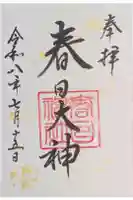 奉拝
春日大神
令和八年七月十五日